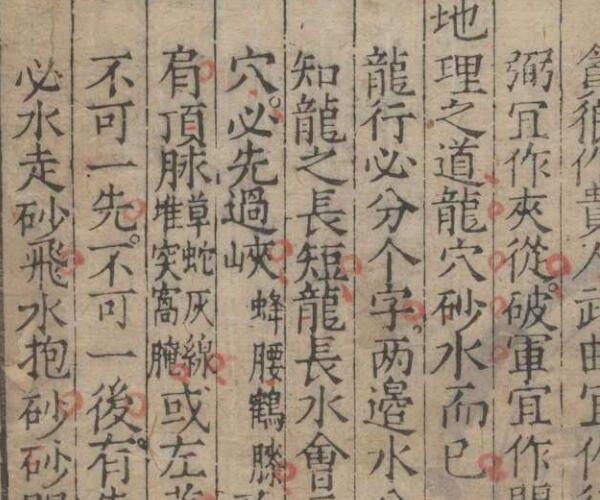 貪狼作貴人武曲宜作
弼宜作夾從破軍宜作
地理之道龍穴砂水而已
龍行必分个字两邉水
知龍之長短龍長水會
穴必先過峽蜂腰鶴膝
肩頂脉草蛇灰線堆突窩腌或左
不可一先不可一後有
必水走砂飛水抱砂砂